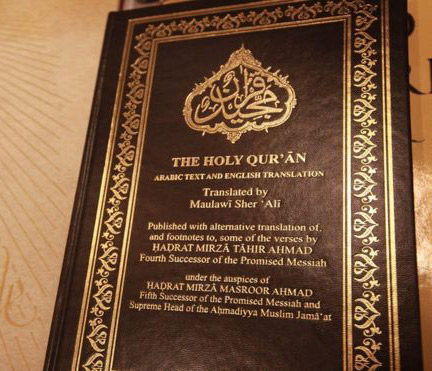 قرآن مجيد
THE HOLY QUR’ĀN
ARABIC TEXT AND ENGLISH TRANSLATION
Translated by
Maulawī Sher ‘Alī
Published with alternative translation of,
and footnotes to, some of the verses by
ḤAḌRAT MIRZĀ ṬĀHIR AHMAD
Fourth Successor of the Promised Messiah
under the auspices of
ḤAḌRAT MIRZĀ MASROOR AHMAD
Fifth Successor of the Promised Messiah and
Supreme Head of the Aḥmadiyya Muslim Jamā‘at